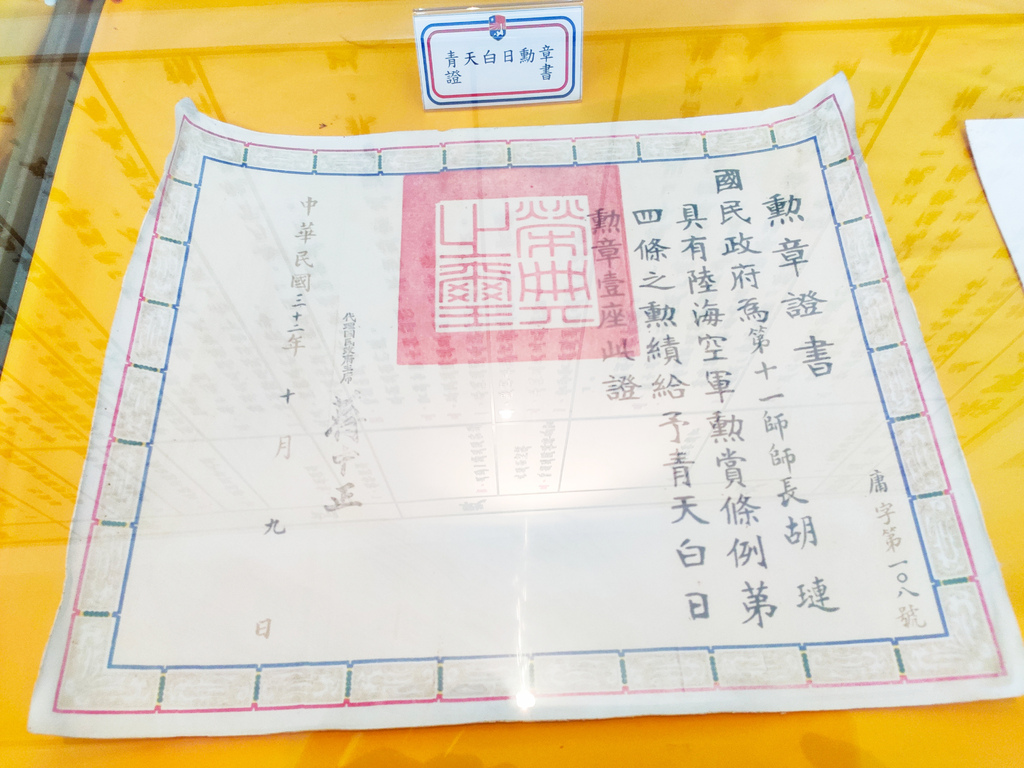 青天白日勳章
證書
勳章證書
國民政府爲第十一師師長胡璉
具有陸海空軍勲賞條例第
四條之勲績給予青天白日
勲章壹座此證
庸字第一〇八號
榮典之璽
代理國民政府主席
蔣中正
中華民國三十二年十月九日